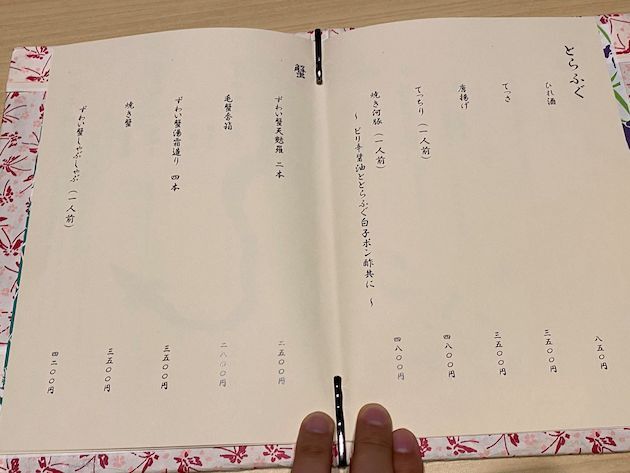 とらふぐ
ひれ酒 八五〇円
てっさ 三五〇〇円
唐揚げ 三五〇〇円
てっちり（一人前） 四八〇〇円
焼き河豚（一人前） 四八〇〇円
～ピリ辛醤油ととらふぐ白子ポン酢共に～
蟹
ずわい蟹天麩羅 二本 二五〇〇円
毛蟹香箱 二八〇〇円
ずわい蟹湯霜造り 四本 三五〇〇円
焼き蟹 三五〇〇円
ずわい蟹しゃぶしゃぶ（一人前） 四二〇〇円